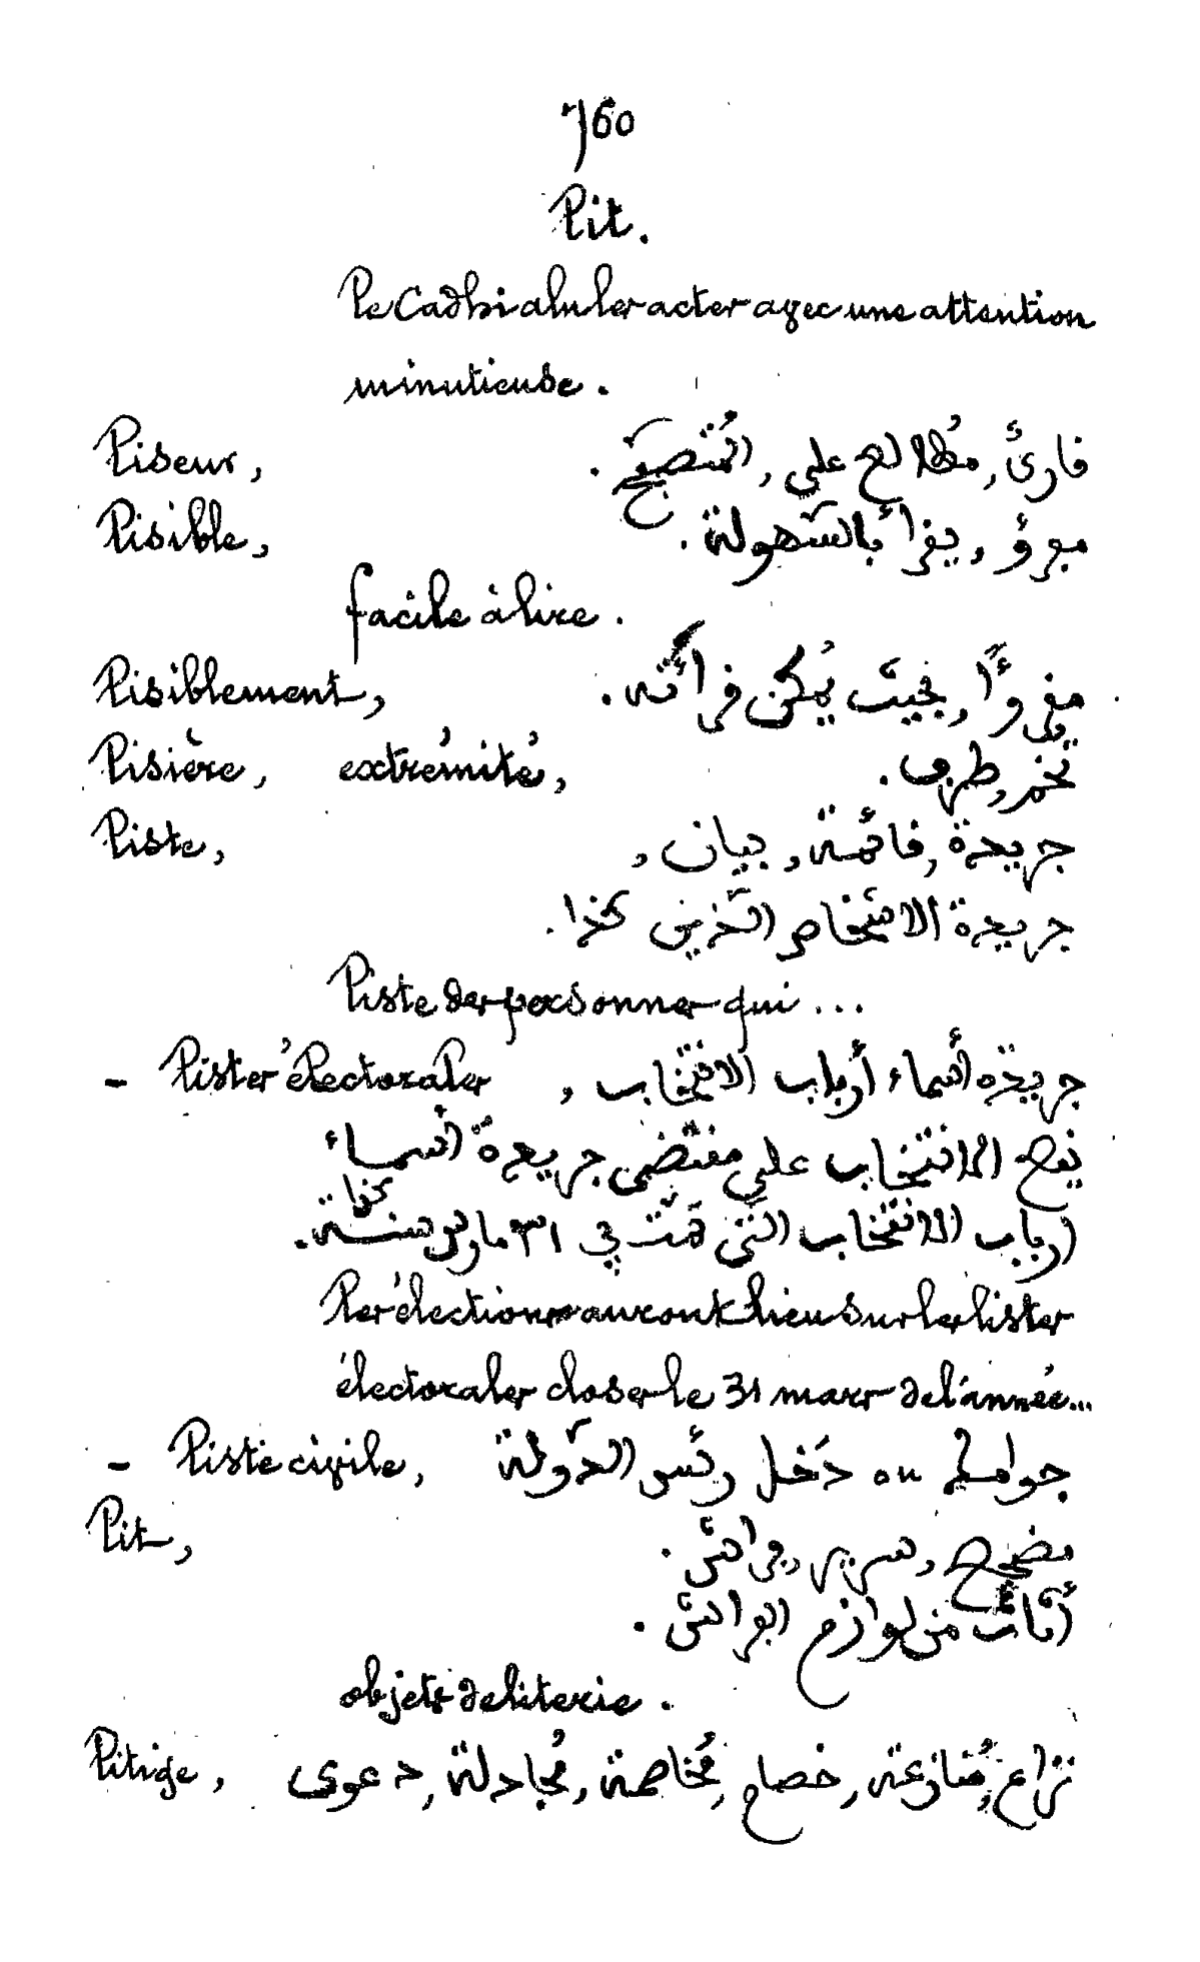 760
Lit.
Le Cadhi a lu les actes avec une attention
minutieuse.
Liseur, قارئ, مُطالع على, المُتصفّح.
Lisible, مقروٌ, يقرأ بالسّهولة.
facile à lire.
Lisiblement, مقروًّا, بحيث يُمكن قرائته.
Lisière, extrémité, تخم, طرف.
Liste, جريدة, قائمة, بيان,
جريدة الاشخاص الّذين كذا.
Liste des personnes qui...
- Listes électorales, جريدة أسماء أرباب الانتخاب
يقع الانتخاب على مقتضى جريدة اسماء
ارباب الانتخاب الّتي تمّت في ٣١ مارس سنة كذا.
Les élections auront lieu sur les listes
électorales closes le 31 mars de l'année...
- Liste civile, ou دَخل رئس الدّولة
Lit, مضجع, سرير, فراش.
أثاث من لوازم الفراش.
objets de literie.
Litige, نزاع, مُنازعة, خصام, مُخاصمة, مُجادلة, دعوى